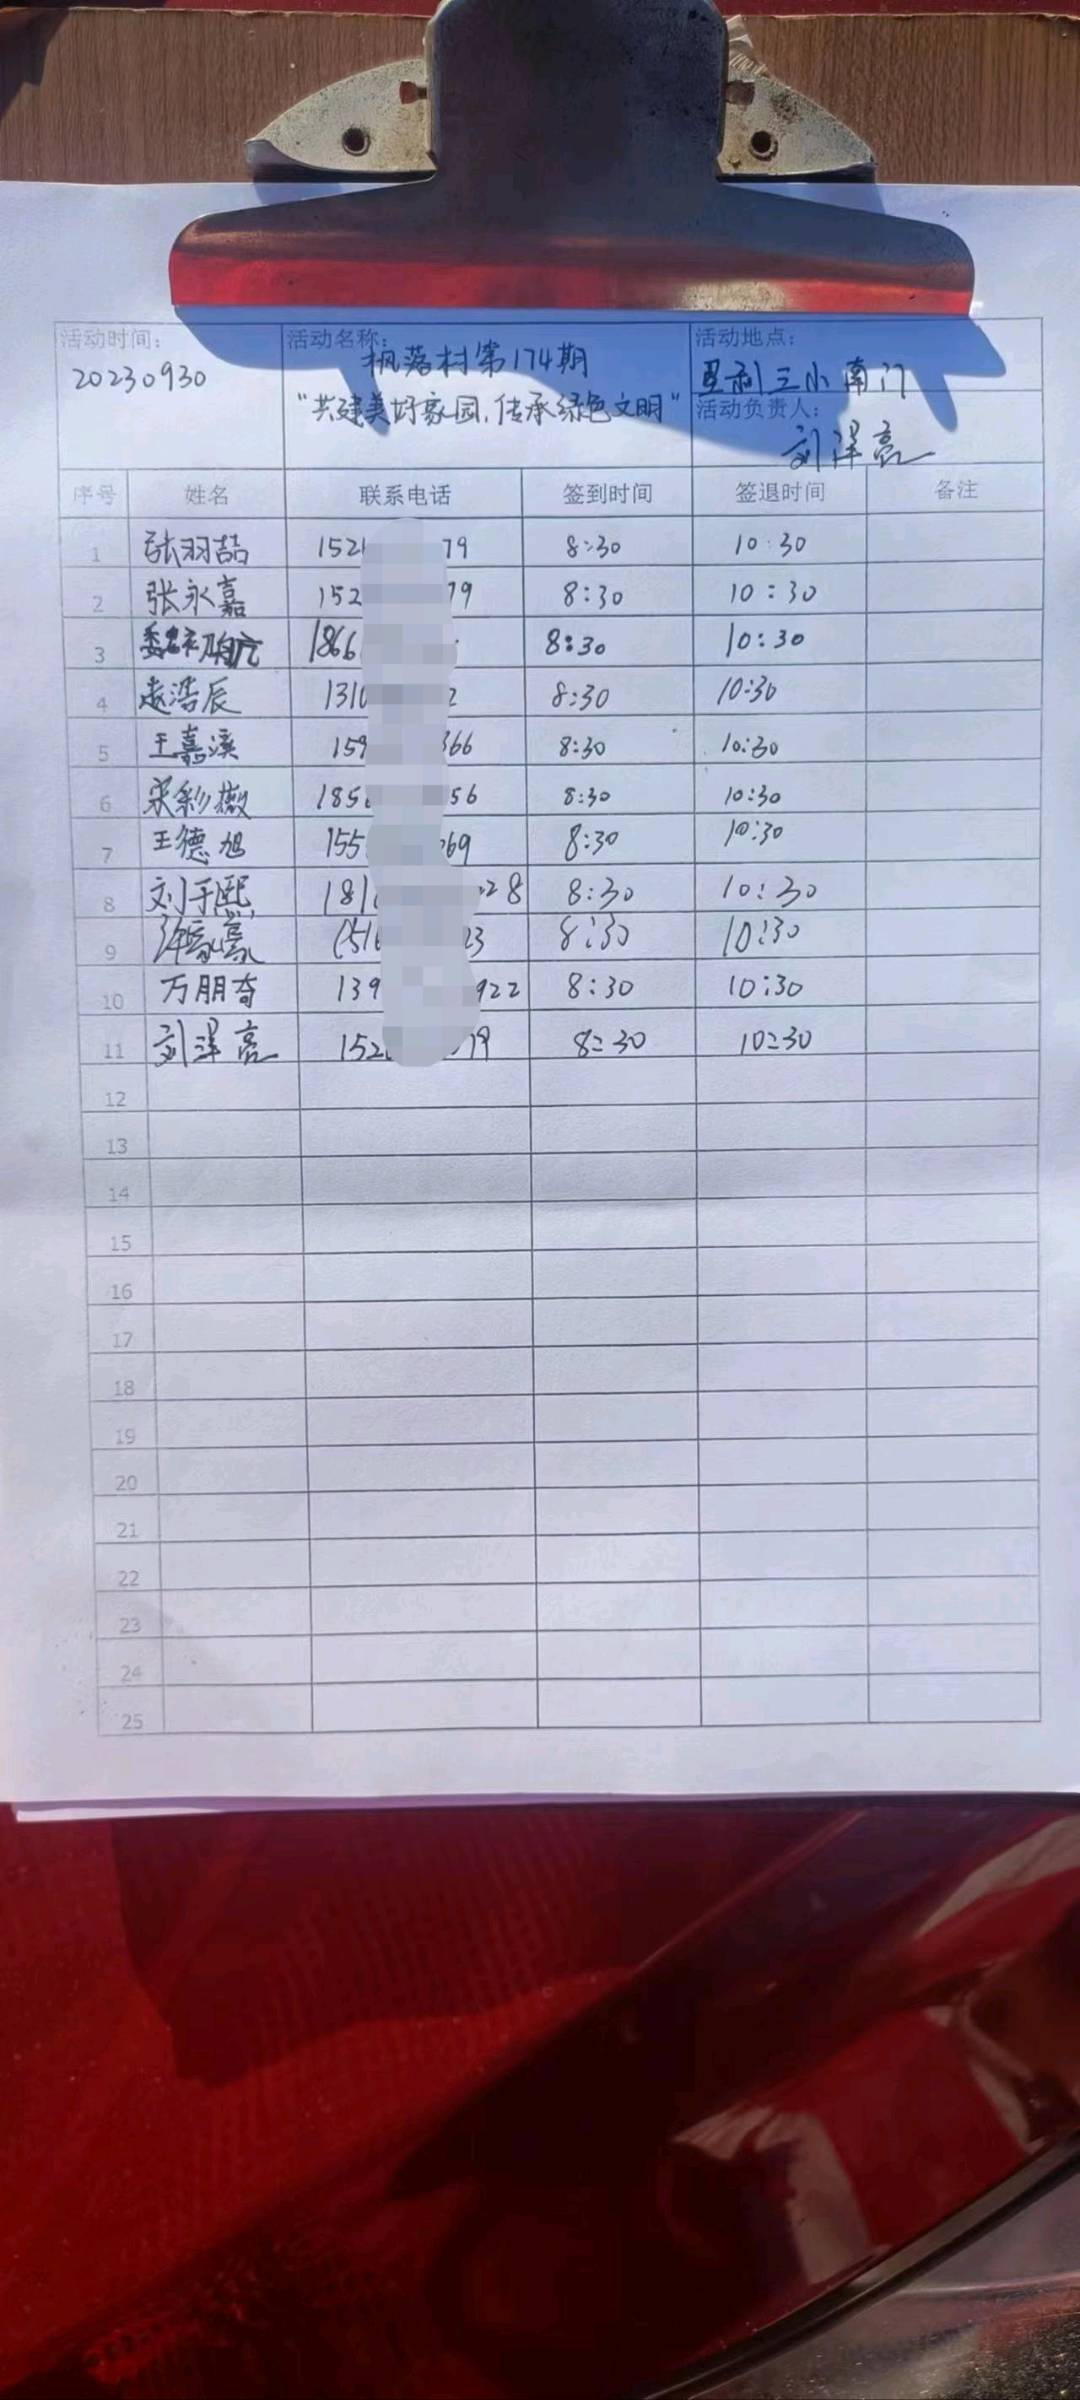 活动时间: 活动名称: 活动地点:
20230930 枫落村第174期 垦利三小南门
"共建美好家园,传承绿色文明" 活动负责人:
刘泽亮
序号 姓名 联系电话 签到时间 签退时间 备注
1 张羽喆 152 79 8:30 10:30
2 张永嘉 152 79 8:30 10:30
3 1866 8:30 10:30
4 赵浩辰 1310 2 8:30 10:30
5 王嘉溪 159 366 8:30 10:30
6 宋彩薇 185 56 8:30 10:30
7 王德旭 155 69 8:30 10:30
8 刘于熙 181 28 8:30 10:30
9 许家豪 151 23 8:30 10:30
10 万朋奇 139 922 8:30 10:30
11 刘泽亮 152 79 8:30 10:30
12
13
14
15
16
17
18
19
20
21
22
23
24
25